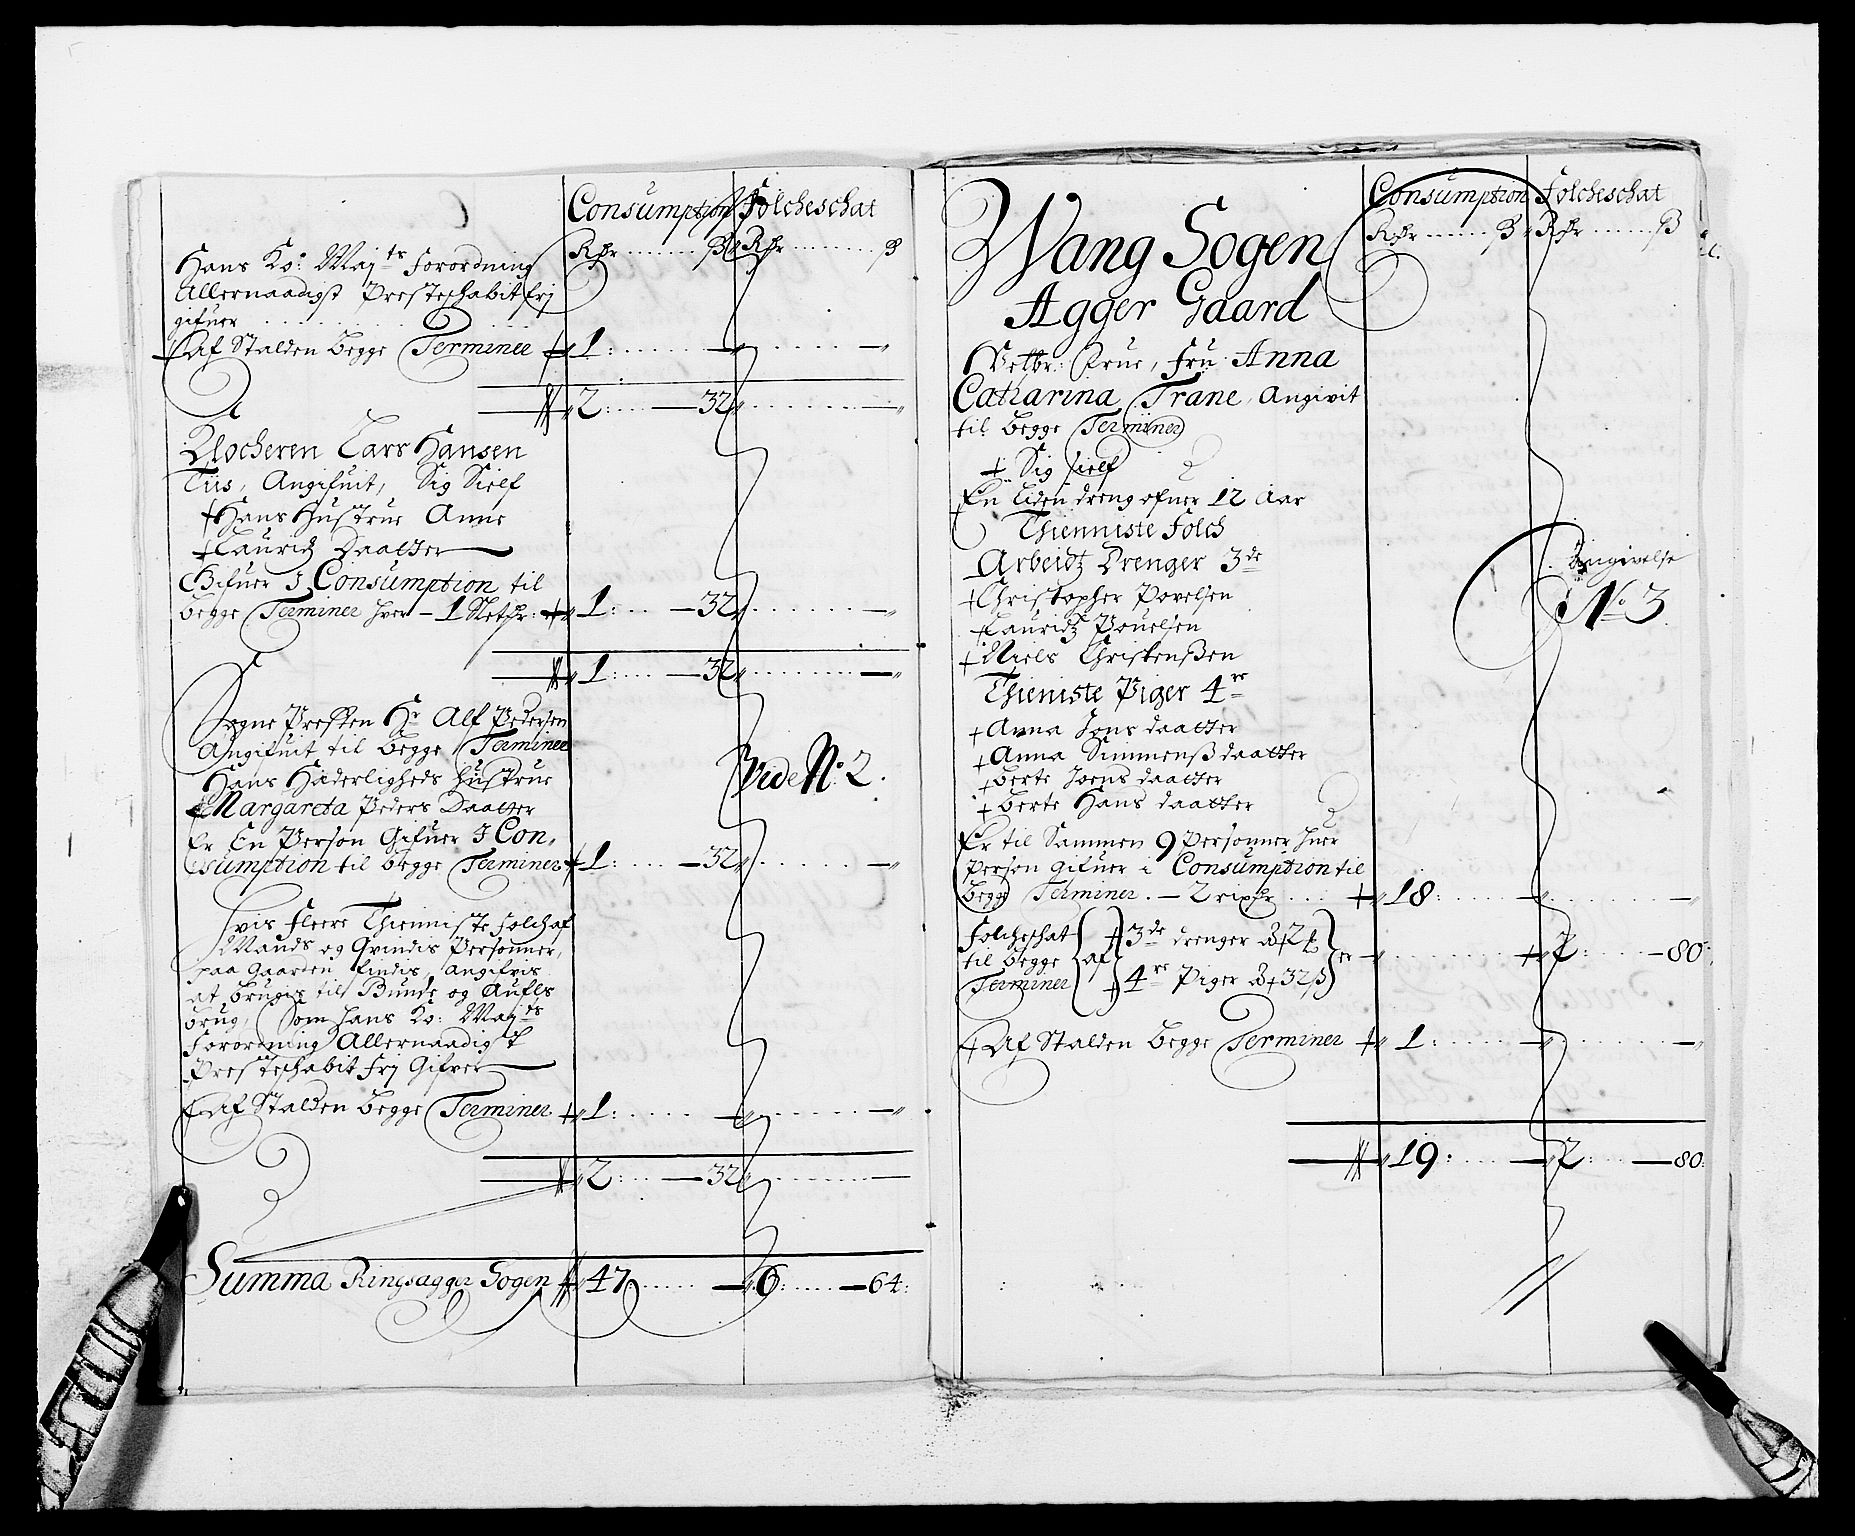 Consumption Folcheschat
Rdr ß Rdr ß
Hans Ko: Maj:ts Forordning
Allernaadigst Presteschabit frj
gifuer
Af Stalden begge Terminer 1: — —
2: — 32 —
Klocheren Lars Hansen
Tiis, Angifuit, Sig Sielf
Hans Hustrue Anne
Lauridz Daatter
Gifuer I Consumption til
begge Terminer hver – 1 Sletdr: 1: — 32 —
1: — 32 —
Sogne Presten Hr Alf Pedersen
Angifuit til begge Terminer
Hans Hæderligheds hustrue
Margareta Peders Daatter
Er En Person Gifuer I Con,
sumption til begge Terminer 1: — 32 —
Vide No: 2.
Hvis fleere Thienniste folch af
Mands og Qvindis Personner,
paa Gaarden findis, angifvis
at brugis till Bunde og Aufls
brug, Som Hans Ko: Maj:ts
Forordning Allernaadigst
Presteschabit frj Gifver
Af Stalden begge Terminer 1: — —
2: — 32 —
Summa Ringsagger Sogen 47 — 6: — 64:
Consumption Folcheschat
Rdr ß Rdr ß
Wang Sogen
Agger Gaard
Velbr: Frue, Fru Anna
Catharina Trane, Angivit
til begge Terminer
Sig sielf
En Liden dreng ofuer 12 Aar
Thienniste Folch
Arbeidtz Drenger 3de
Christopher Povelsen
Lauridtz Pouelsen
Niels Christenßen
Angivelse
No 3
Thieniste Piger 4re
Anna Jons daatter
Anna Simmenß daatter
Berte Joens daatter
Berte Hans daatter
Er til Sammen 9 Personner huer
Person gifuer i Consumption til
begge Terminer – 2 rixdr 18: —
Folcheschat 3de drenger
til begge af er 2: — 80:
Terminer 4re Piger 32 ß
Af Stalden begge Terminer 1: — —
19: — 2: — 80: